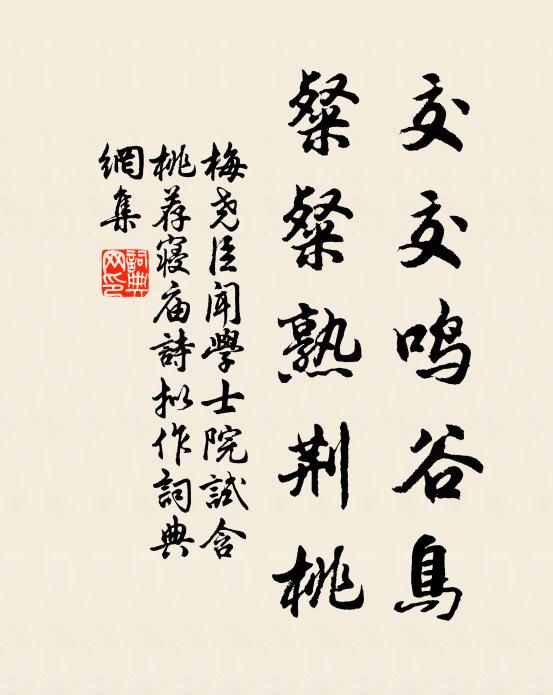 交交鸣谷鳥
粲粲熟荆桃
梅尧臣闻學士院試含
桃荐寝庙詩拟作詞典
網集
詞典网印